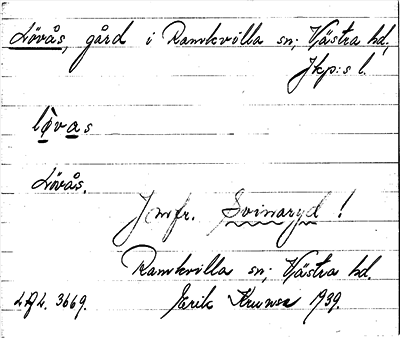 Lövås, gård i Ramkvilla sn; Västra hd,
Jkp:s l.
lö̀vas
Lövås.
Jmfr. Svinaryd !
Ramkvilla sn; Västra hd.
3669. Erik 1939.